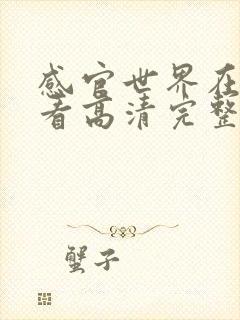 感官世界在
看高清完整
蟹子